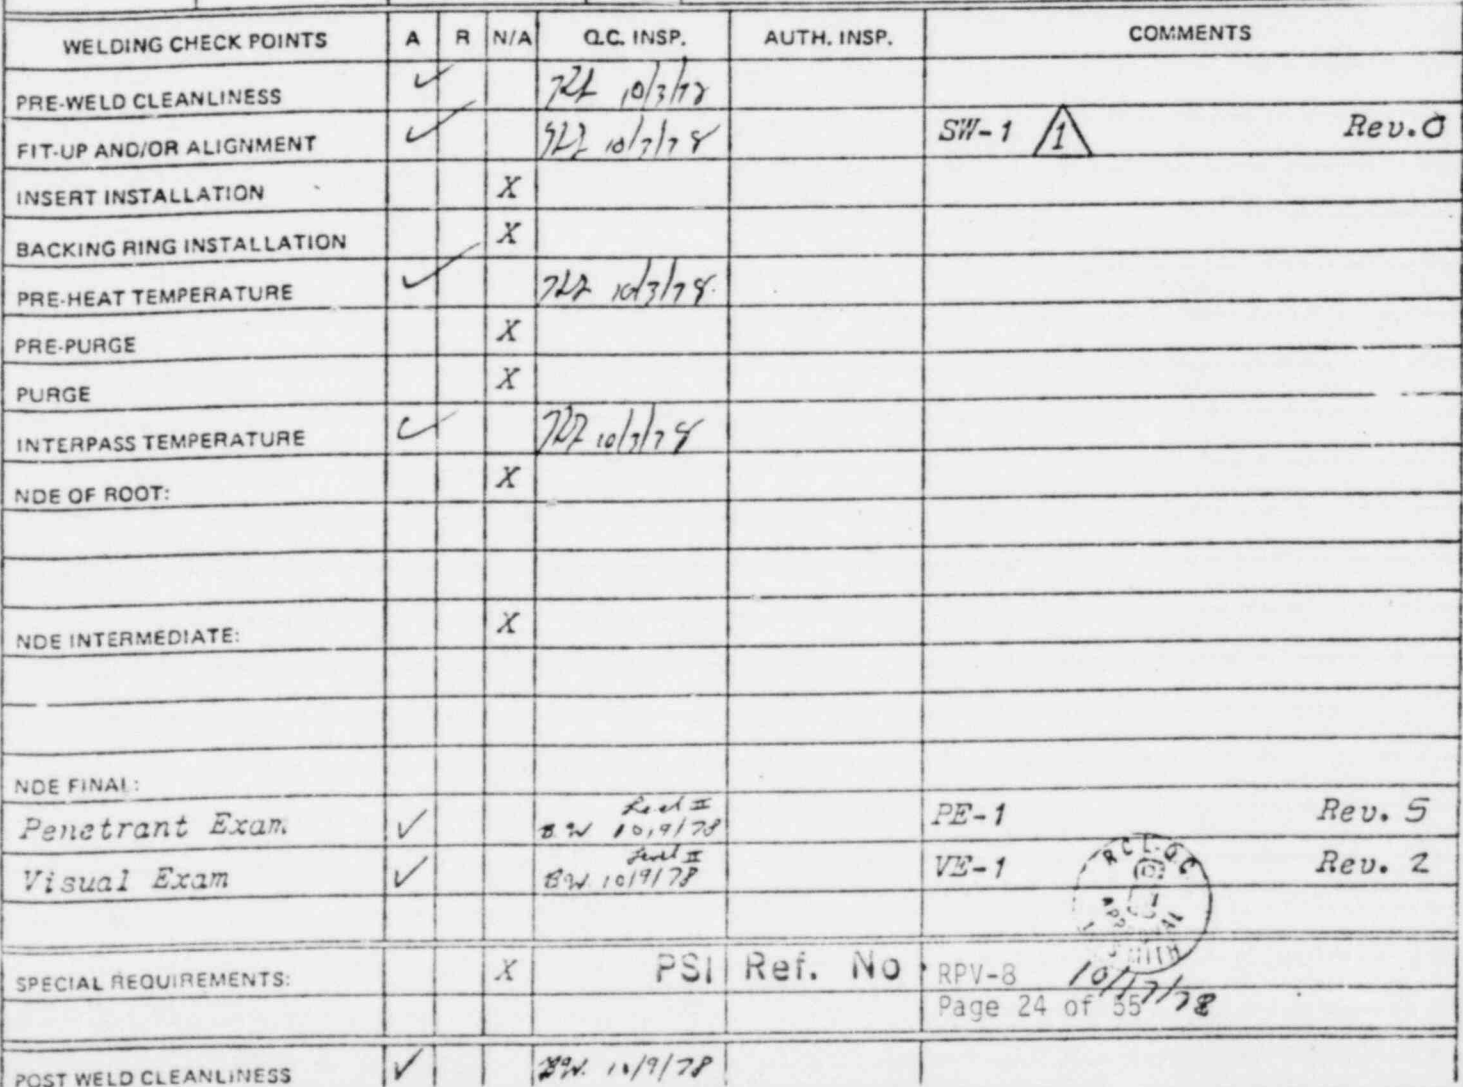 WELDING CHECK POINTS A R N/A Q.C. INSP. AUTH. INSP. COMMENTS
PRE-WELD CLEANLINESS ✓ 10/3/78
FIT-UP AND/OR ALIGNMENT ✓ 10/3/78 SW-1 1 Rev.0
INSERT INSTALLATION X
BACKING RING INSTALLATION X
PRE-HEAT TEMPERATURE ✓ 10/3/78
PRE-PURGE X
PURGE X
INTERPASS TEMPERATURE ✓ 10/3/78
NDE OF ROOT: X
NDE INTERMEDIATE: X
NDE FINAL:
Penetrant Exam ✓ Level II B.W. 10/9/78 PE-1 Rev. 5
Visual Exam ✓ Level II B.W. 10/9/78 VE-1 Rev. 2
RCI-QC
SPECIAL REQUIREMENTS: X PSI Ref. No. RPV-8 10/17/78
Page 24 of 55
POST WELD CLEANLINESS ✓ B.W. 10/9/78